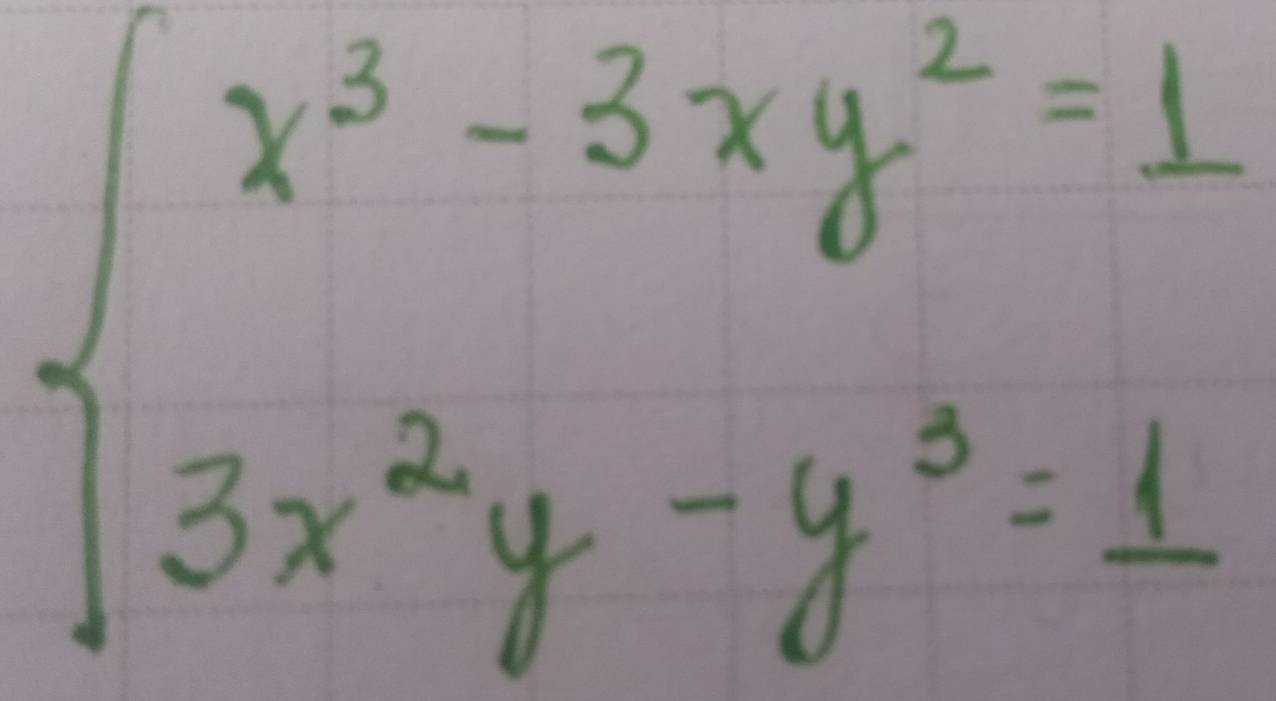 x³ - 3xy² = 1
3x²y - y³ = 1